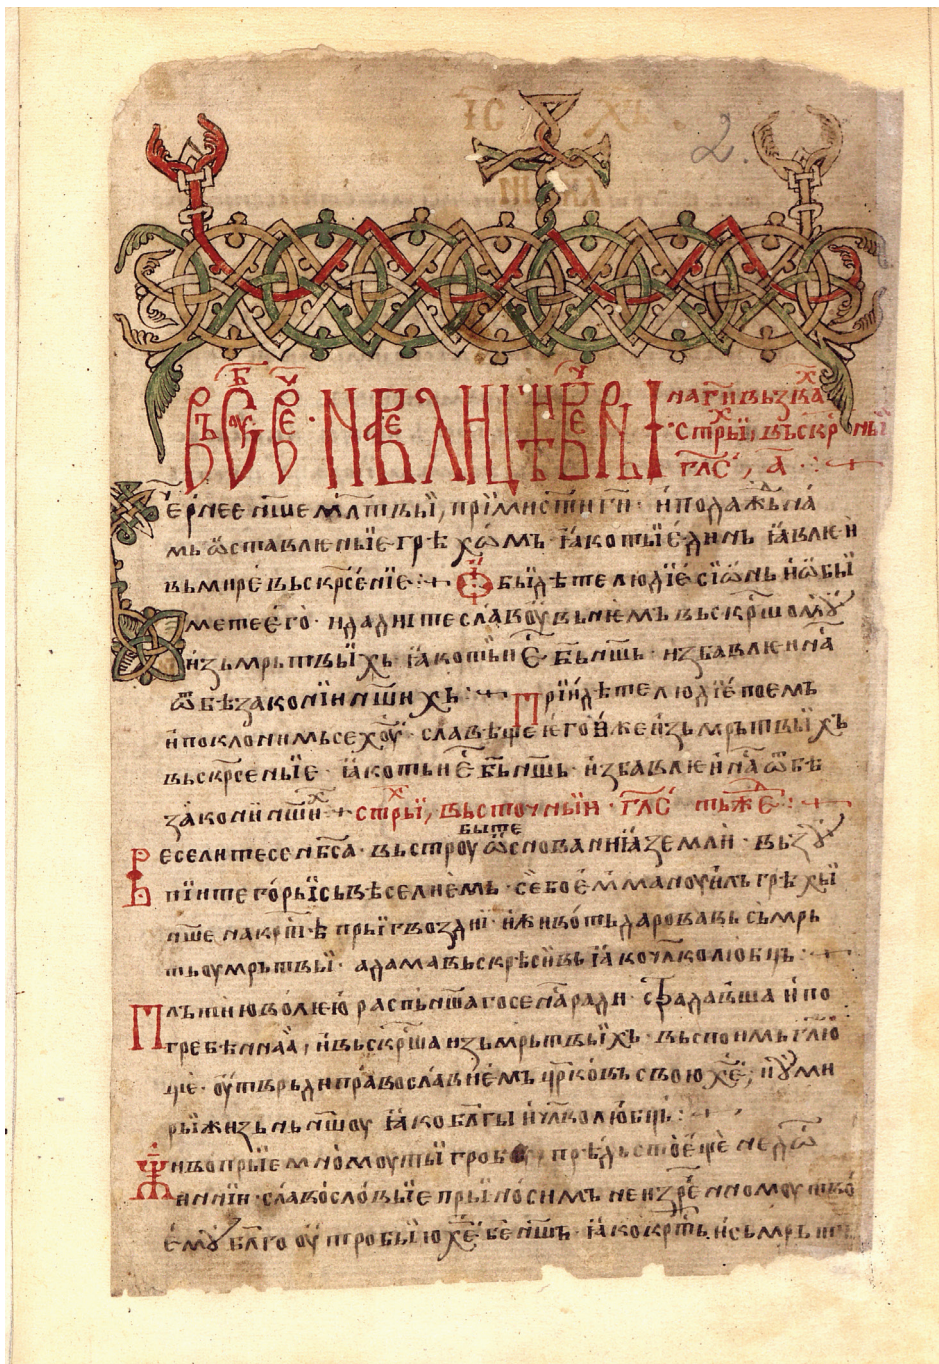 2.
на г҃и възва
стр҃ы, въскр҃ны
гла҃с, а҃
ѥрнее нш҃е мл҃твы, прїими ст҃ы г҃и· и подажⷣь на
мь ѡставлѥнїе грѣхѡмь· ꙗко ты ѥдинь ꙗвлѥи
вь мире вьскрсе́нїе· Ѡбыдѣте людїе сїѡнь и ѡбы
мете ѥго· и дадите славоу вь нѥмь вьскрьшомꙋ
изь мрьтвыхь· ꙗко тьи ѥ҃ б҃ь нш҃ь· избавлѥи на҃
ѿ безаконїи нш҃ихь· Прїидѣте людїе поемь
и поклонимь се хо҃у· славеще ѥго иже изь мрьтвыхь
вьскрсенїе· ꙗко тьи ѥ҃ б҃ь нш҃ь· избавлѥи на҃ ѿ бе
законїи нш҃и· стр҃ы, вьсточны· гла҃с тьжⷣе
Веселите се нб҃са· вьстроубите ѡснованиꙗ земли· вьзꙋ
пїите горы сь веселиѥмь· се бо ѥмманоуиль грѣхы
нш҃е на крⷭтѣ пригвозди· и животь дарова съмрь
ть оумрьтвы· адама вьскрѣси ꙗко чл҃колюбць·
Пльтїю волѥю распьнша го се на҃ ради· страдавша и по
гребенна, и вьскрш҃а изь мрьтвыхь· вьспоимь гл҃ю
ще· оутврьди православиѥмь црковь свою хе҃, и ꙋми
ры жизнь нш҃оу ꙗко бл҃гы и чл҃колюбць·
Живопрїемномоу ты гробꙋ прѣдьстоѥще недѡ
инїи· славословїе приносимь неизреⷱнномоу тво
ѥмꙋ бл҃гооутробїю хе҃ бе҃ нш҃ь· ꙗко крⷭть и сьмрьть